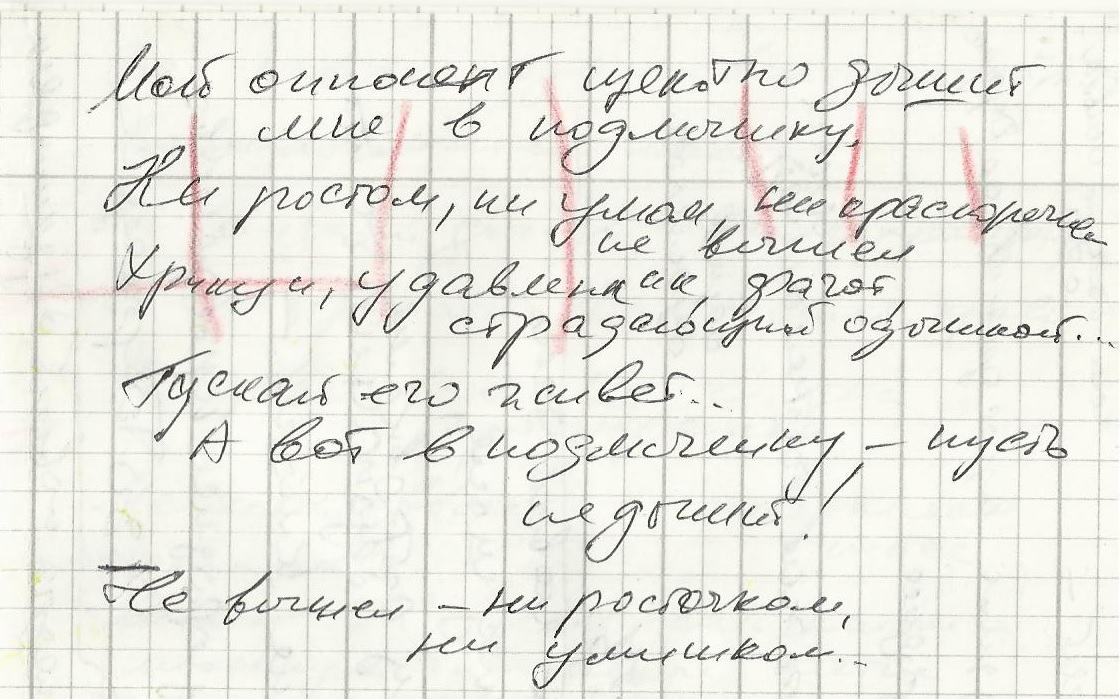 Мой оппонент щекотно дышит
мне в подмышку,
Ни ростом, ни умом, ни красноречием
не вышел
Хрипун, удавленник, фагот,
страдающий одышкой...
Пускай его живёт...
А вот в подмышку, – пусть
не дышит!
Не вышел – ни росточком,
ни умишком...